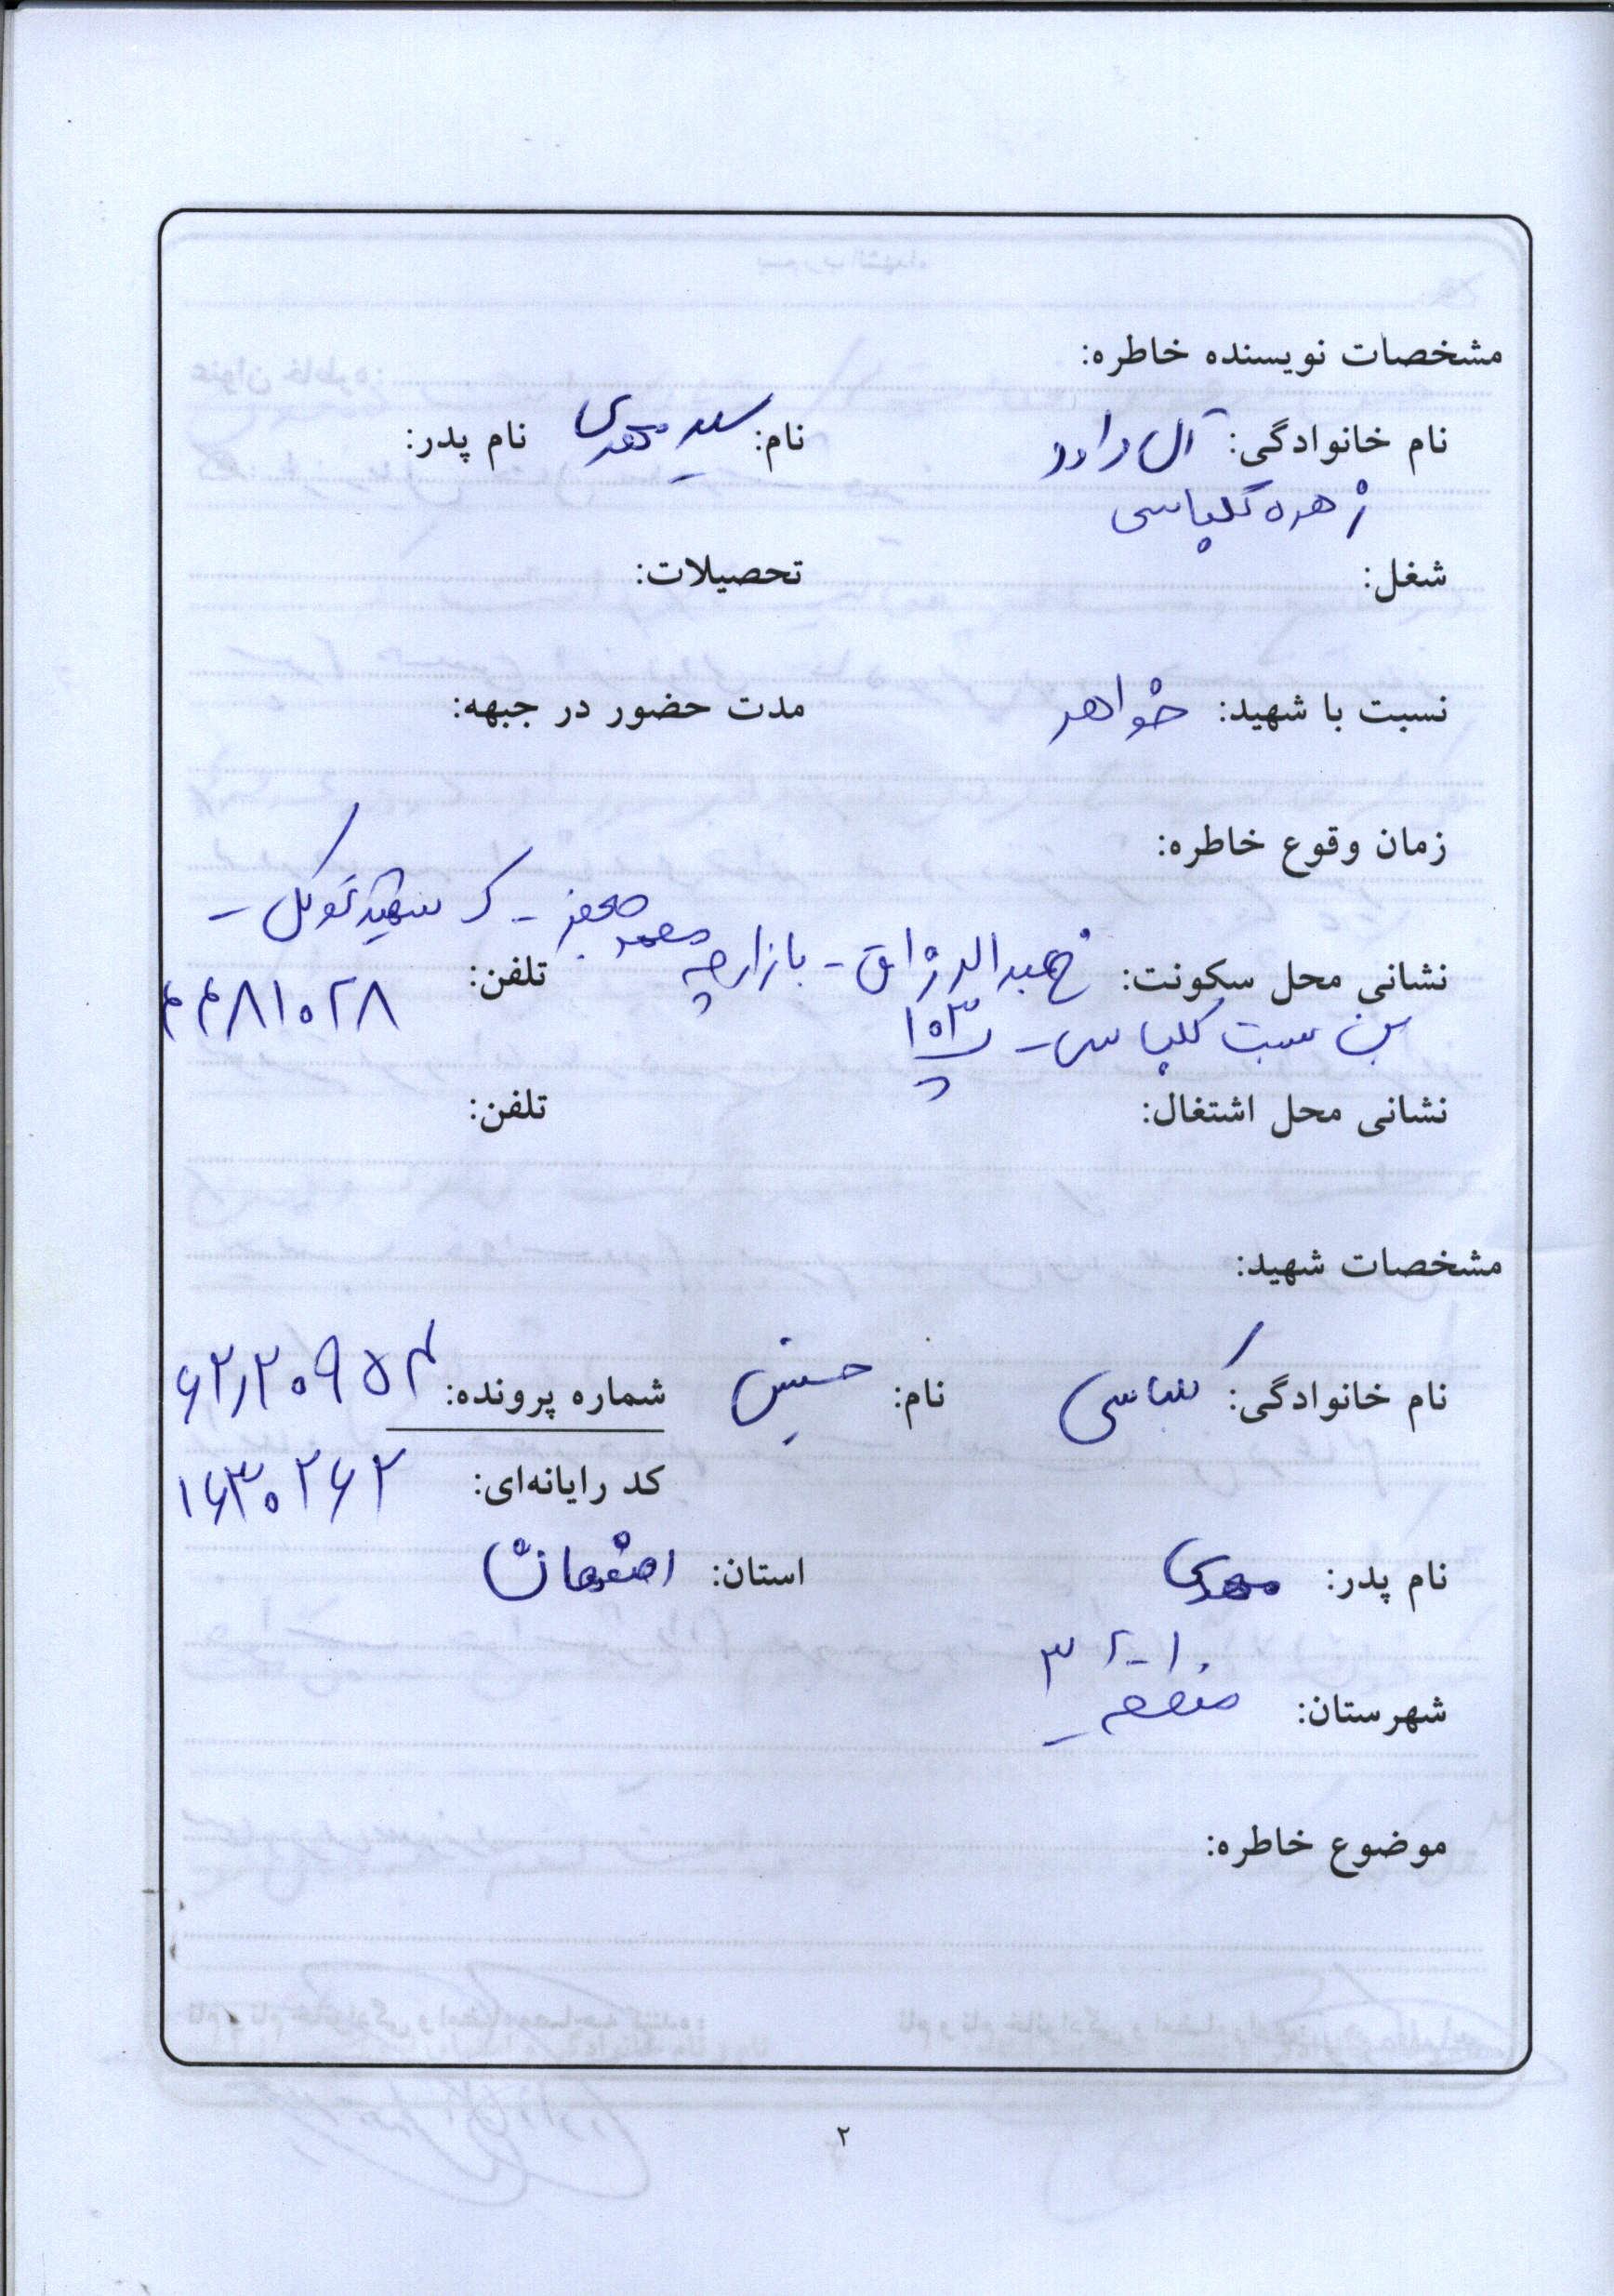 مشخصات نویسنده خاطره:
نام خانوادگی: آل داود نام: سید مهدی نام پدر:
زهره کلباسی
شغل: تحصیلات:
نسبت با شهید: خواهر مدت حضور در جبهه:
زمان وقوع خاطره:
نشانی محل سکونت: خ عبدالرزاق - بازارچه - ک شهید توکل - تلفن: ۴۴۸۱۰۲۸
بن بست کلباسی - پ ۱۰۳
نشانی محل اشتغال: تلفن:
مشخصات شهید:
نام خانوادگی: کلباسی نام: حسین شماره پرونده: ۶۲/۲۰۹۵۴
کد رایانه‌ای: ۱۶۳۰۲۶۲
نام پدر: مهدی استان: اصفهان
شهرستان: منطقه ۳
موضوع خاطره:
۲